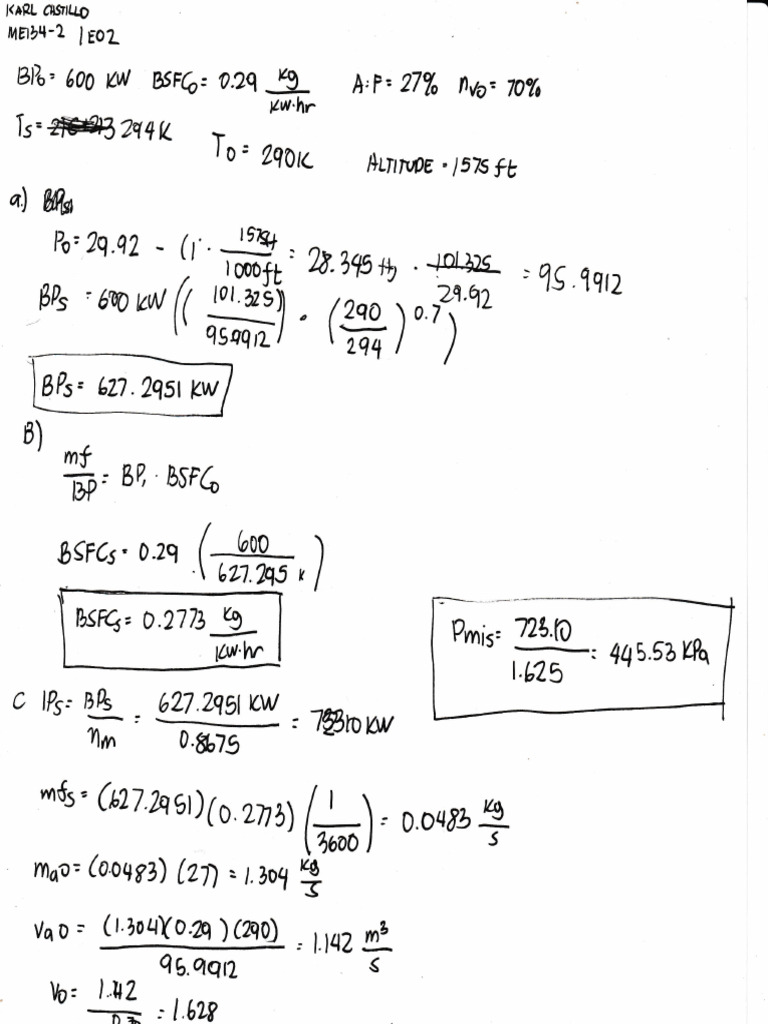 KARL CASTILLO
ME134-2 1E02
BPo = 600 KW BSFCo = 0.29 kg/KW·hr A:F = 27% nvo = 70%
Ts = 294K To = 290K ALTITUDE = 1575 ft
a.)
Po = 29.92 - (1 · 1575ft/1000ft = 28.345 Hg · 101.325/29.92 = 95.9912
BPs = 600 KW ((101.325)/95.9912) · (290/294)^0.7)
BPs = 627.2951 KW
B)
mf/BP = BP, · BSFCo
BSFCs = 0.29 · (600/627.295 K)
BSFCs = 0.2773 kg/KW·hr
Pmis = 723.10/1.625 = 445.53 KPa
C IPs = BPs/nm = 627.2951 KW/0.8675 = KW
mfs = (627.2951)(0.2773)(1/3600) = 0.0483 kg/s
mao = (0.0483)(27) = 1.304 kg/s
Vao = (1.304)(0.29)(290)/95.9912 = 1.142 m³/s
Vo = 1.142/ = 1.628